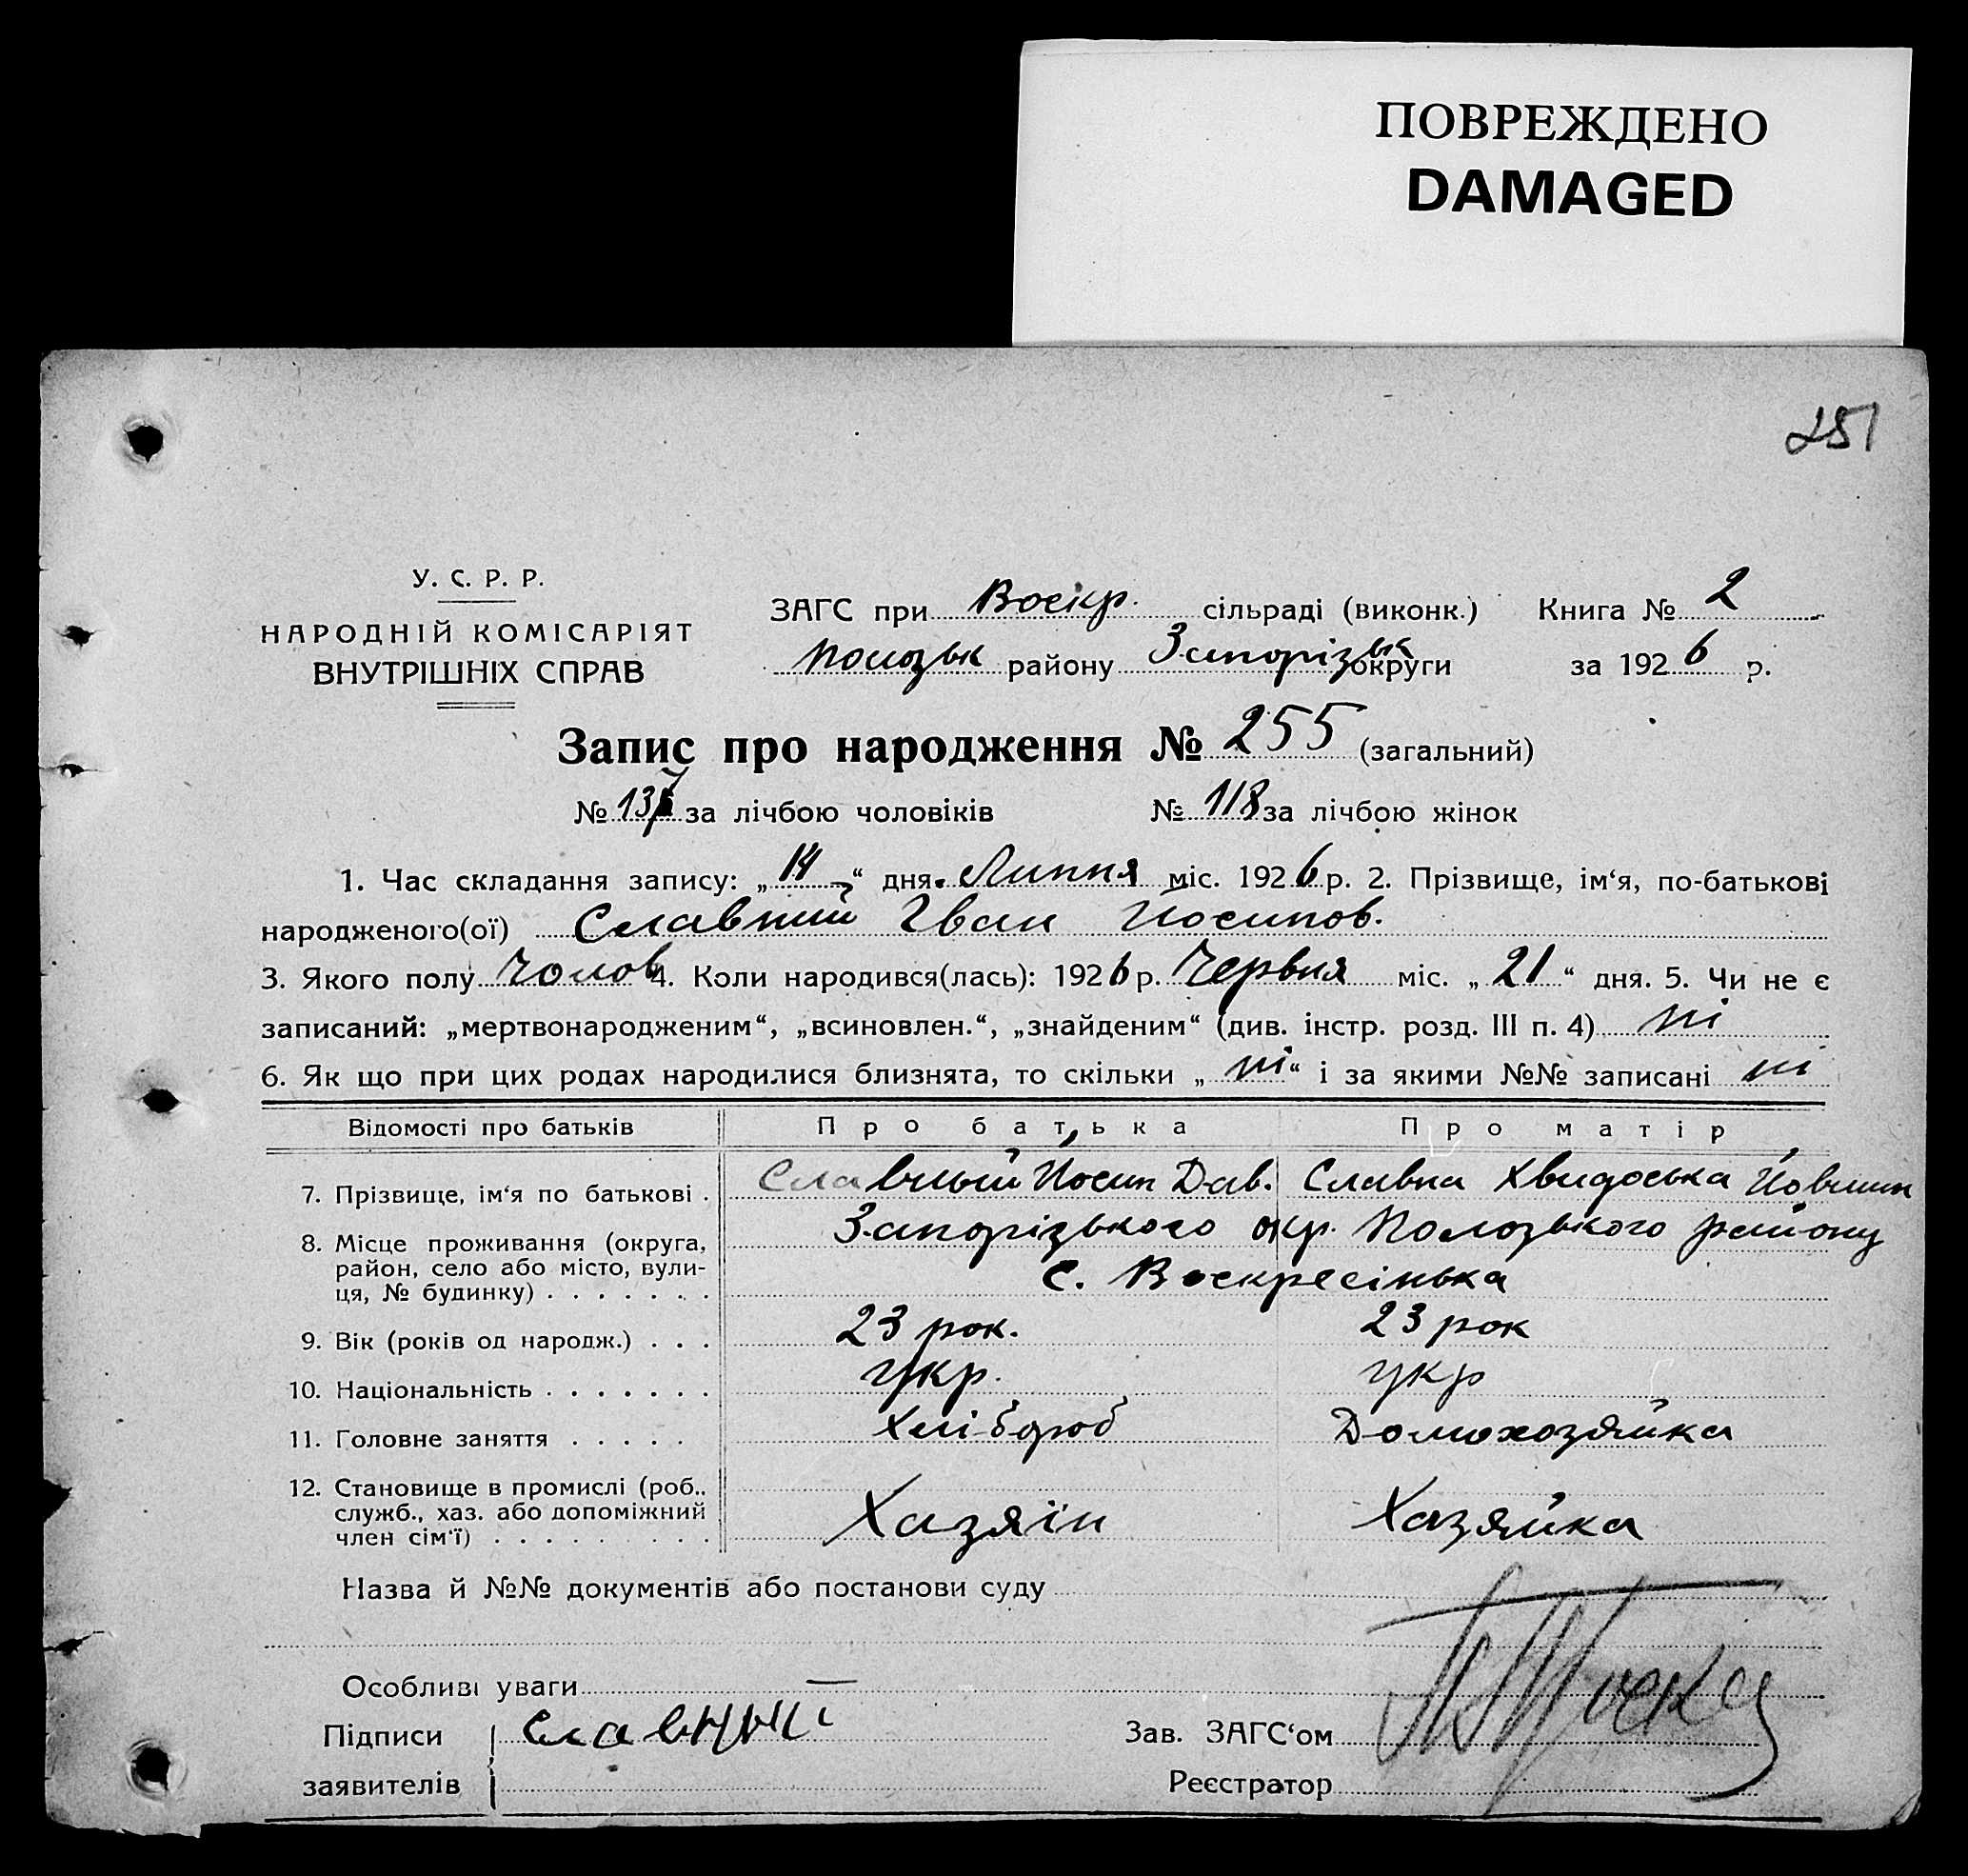 ПОВРЕЖДЕНО
DAMAGED
251
У. С. Р. Р.
НАРОДНІЙ КОМІСАРІЯТ
ВНУТРІШНІХ СПРАВ
ЗАГС при Воскр. сільраді (виконк.) Книга № 2
Полозьк району Запорізьк округи за 1926 р.
Запис про народження № 255 (загальний)
№ 137 за лічбою чоловіків № 118 за лічбою жінок
1. Час складання запису: „14“ дня Липня міс. 1926 р. 2. Прізвище, ім‘я, по-батькові
народженого(ої) Славний Іван Йосипов.
3. Якого полу Чолов 4. Коли народився(лась): 1926 р. Червня міс. „21“ дня. 5. Чи не є
записаний: „мертвонародженим“, „всиновлен.“, „знайденим“ (див. інстр. розд. III п. 4) ні
6. Як що при цих родах народилися близнята, то скільки „ні“ і за якими №№ записані ні
Відомості про батьків Про батька Про матір
7. Прізвище, ім‘я по батькові . Славный Йосип Дав. Славна Хвидоська
8. Місце проживання (округа, Запорізького окр. Полозького району
район, село або місто, вули-
ця, № будинку) . . . . . . . с. Воскресінька
9. Вік (років од народж.) . . . 23 рок. 23 рок
10. Національність . . . . . . . укр. укр
11. Головне заняття . . . . . Хлібороб Домохозяйка
12. Становище в промислі (роб..
служб., хаз. або допоміжний
член сім‘ї) . . . . . . . . . Хазяїн Хазяйка
Назва й №№ документів або постанови суду
Особливі уваги —
Підписи Славный
Зав. ЗАГС‘ом
заявителів
Реєстратор